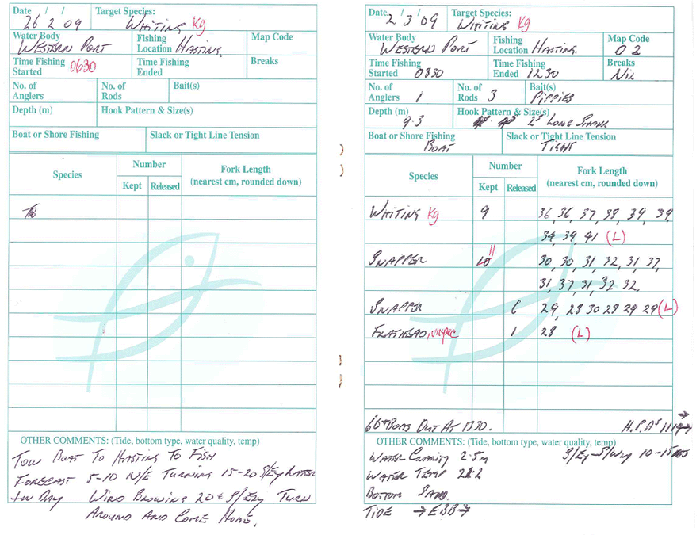 Date 26 / 2 / 09 Target Species: WHITING Kg
Water Body WESTERN PORT Fishing Location HASTING Map Code
Time Fishing Started 0630 Time Fishing Ended Breaks
No. of Anglers No. of Rods Bait(s)
Depth (m) Hook Pattern & Size(s)
Boat or Shore Fishing Slack or Tight Line Tension
Species Number Fork Length
Kept Released (nearest cm, rounded down)
OTHER COMMENTS: (Tide, bottom type, water quality, temp)
TOW BOAT TO HASTING TO FISH
FORECAST 5-10 N/E TURNING 15-20 S/Ely LATER
IN DAY WIND BLOWING 20+ S/Ely TURN
AROUND AND COME HOME.
Date 2 / 3 / 09 Target Species: WHITING Kg
Water Body WESTERN PORT Fishing Location HASTING Map Code 02
Time Fishing Started 0830 Time Fishing Ended 1230 Breaks NIL
No. of Anglers 1 No. of Rods 3 Bait(s) PIPPIES
Depth (m) 9.3 Hook Pattern & Size(s) LONG SHANK
Boat or Shore Fishing BOAT Slack or Tight Line Tension TIGHT
Species Number Fork Length
Kept Released (nearest cm, rounded down)
WHITING Kg 9 36, 36, 37, 38, 39, 39
39, 39, 41 (L)
SNAPPER 11 30, 30, 31, 32, 31, 37,
31, 37, 31, 32, 32
SNAPPER 6 29, 28 30 28 29 29 (L)
FLATHEAD 1 28 (L)
BOATS OUT AT 1230. →
OTHER COMMENTS: (Tide, bottom type, water quality, temp)
WATER 2.5m S/Ely 10-15 KTS
WATER TEMP 22.2
BOTTOM SAND.
TIDE → EBB →